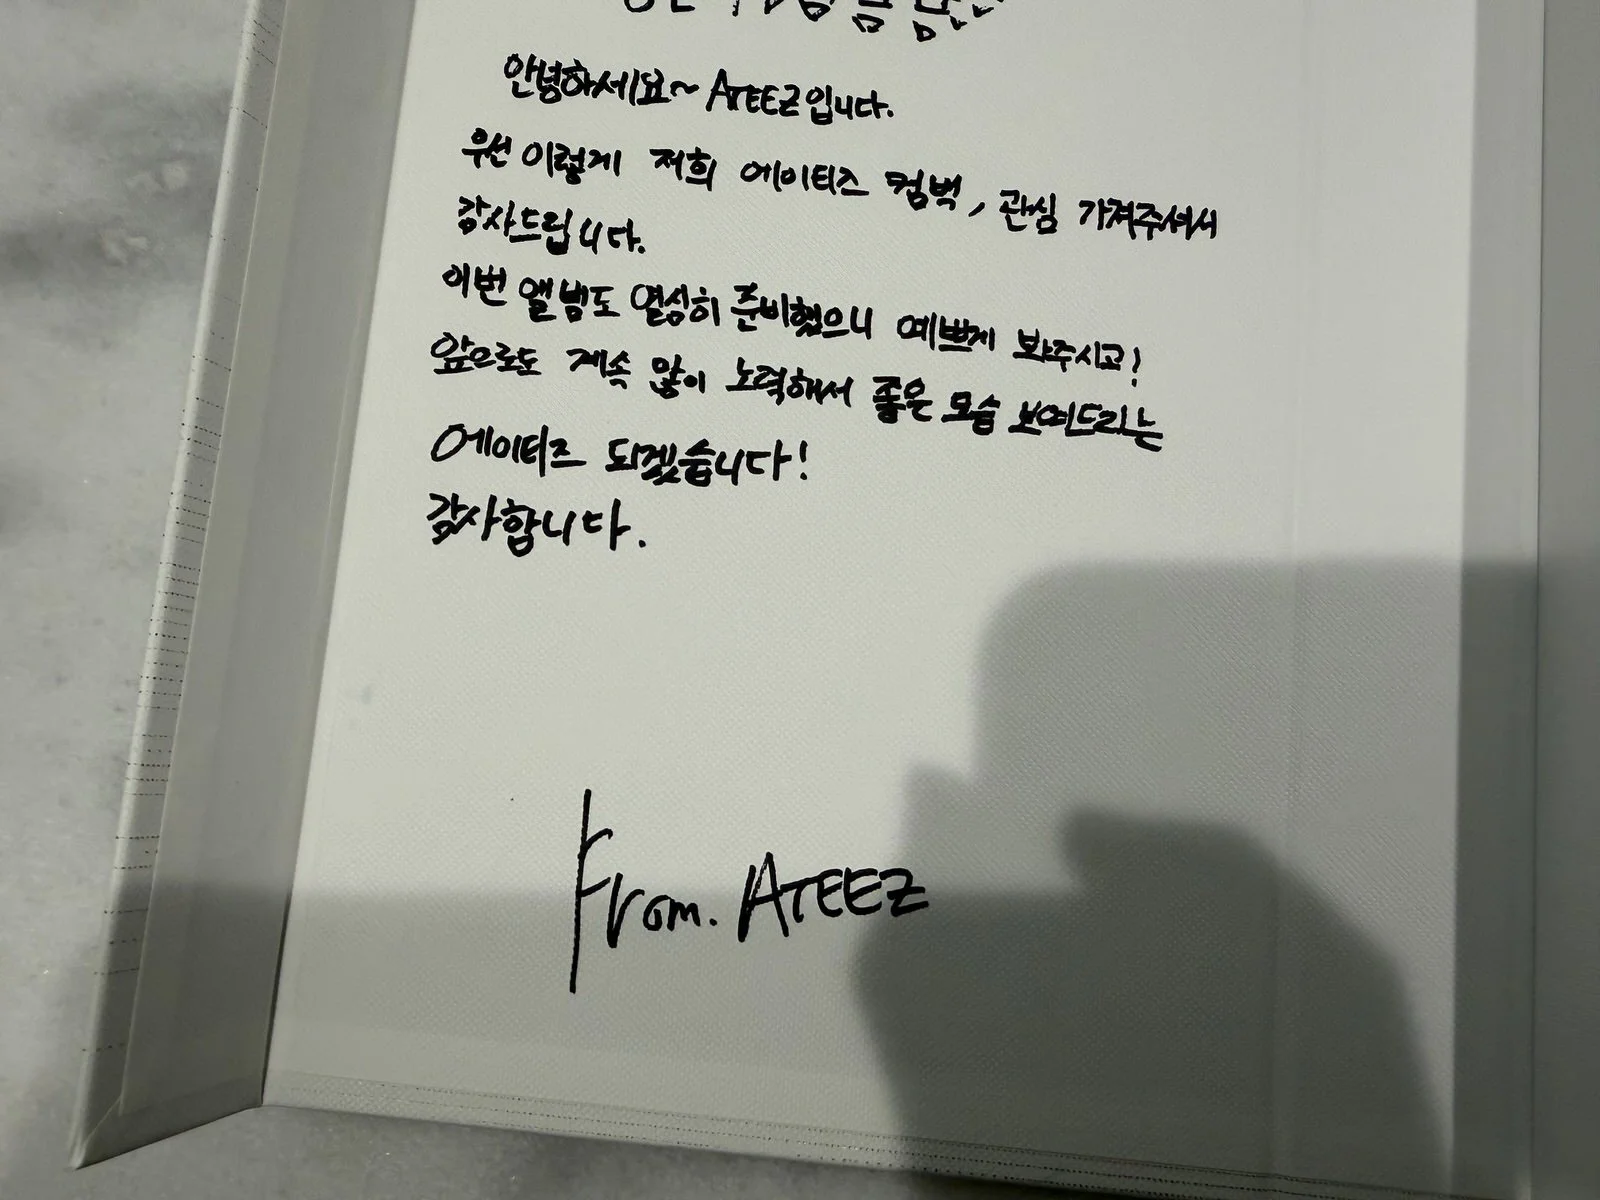 안녕하세요~ ATEEZ입니다.
우선 이렇게 저희 에이티즈 컴백, 관심 가져주셔서
감사드립니다.
이번 앨범도 열심히 준비했으니 예쁘게 봐주시고!
앞으로도 계속 많이 노력해서 좋은 모습 보여드리는
에이티즈 되겠습니다!
감사합니다.
From. ATEEZ